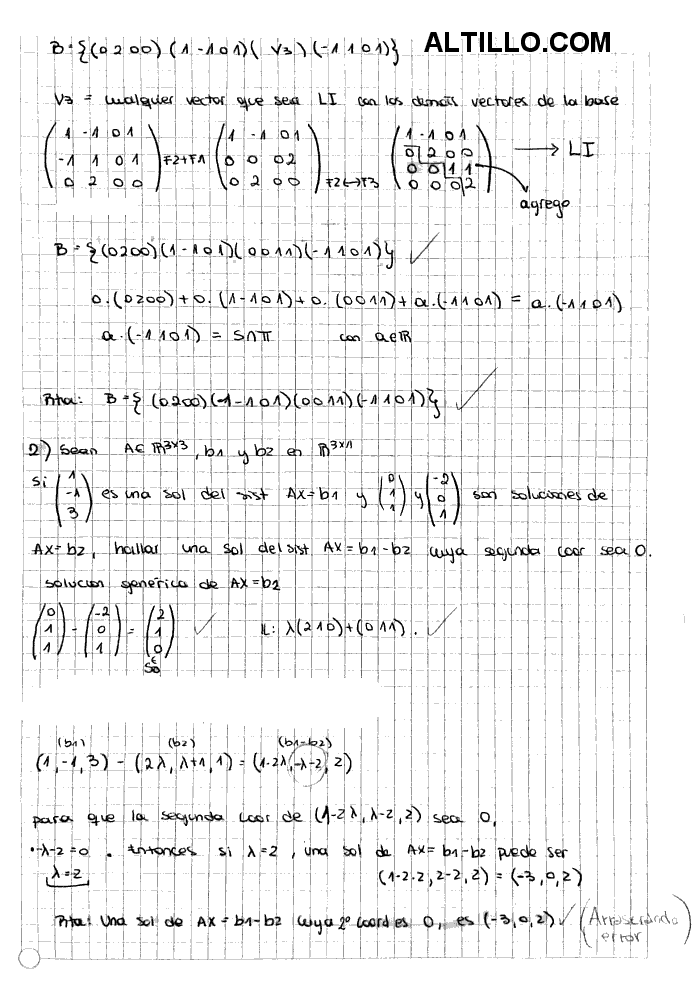 B={(0200)(1-101)( V3 )(-1101)}
ALTILLO.COM
V3 = cualquier vector que sea LI con los demás vectores de la base
(1 -1 0 1) (1 -1 0 1) (1 -1 0 1)
(-1 1 0 1) F2+F1 (0 0 0 2) (0 2 0 0) → LI
(0 2 0 0) (0 2 0 0) F2↔F3 (0 0 1 1)
(0 0 0 2)
agrego
B={(0200)(1-101)(0011)(-1101)} ✓
0.(0200)+0.(1-101)+0.(0011)+a.(-1101) = a.(-1101)
a.(-1101) = S∩π con a∈ℝ
Rta: B={(0200)(-1-101)(0011)(-1101)} ✓
2) Sean A∈ℝ³ˣ³, b1 y b2 en ℝ³ˣ¹
Si (1 -1 3) es una sol del sist AX=b1 y (0 1 1) y (-2 0 1) son soluciones de
AX=b2, hallar una sol del sist AX=b1-b2 cuya segunda coor sea 0.
solucion genérica de AX=b2
(0 1 1) - (-2 0 1) = (2 1 0) ✓ IL: λ(210)+(011). ✓
So
(b1) (b2) (b1-b2)
(1,-1,3) - (2λ,λ+1,1) = (1-2λ,-λ-2,2)
para que la segunda coor de (1-2λ,λ-2,2) sea 0,
·-λ-2=0 . Entonces si λ=2, una sol de AX=b1-b2 puede ser
λ=2 (1-2.2,2-2,2) = (-3,0,2)
Rta: Una sol de AX=b1-b2 cuya 2º coord es 0, es (-3,0,2) ✓ (Arrastrando
error)